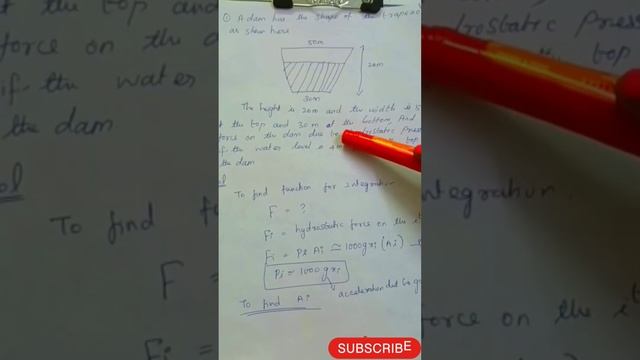 ① A dam has the shape of the trapezoid
as shown here
50m
20m
30m
The height is 20m and the width is 5
at the top and 30m at the bottom. And
force on the dam due to hydrostatic pres
if the water level is 4m top
the dam
Sol
To find function for integration
F = ?
Fi = hydrostatic force on the i
Fi = Pi Ai ≅ 1000gxi (Ai)
Pi = 1000gxi
acceleration due to g
To find Ai
SUBSCRIBE